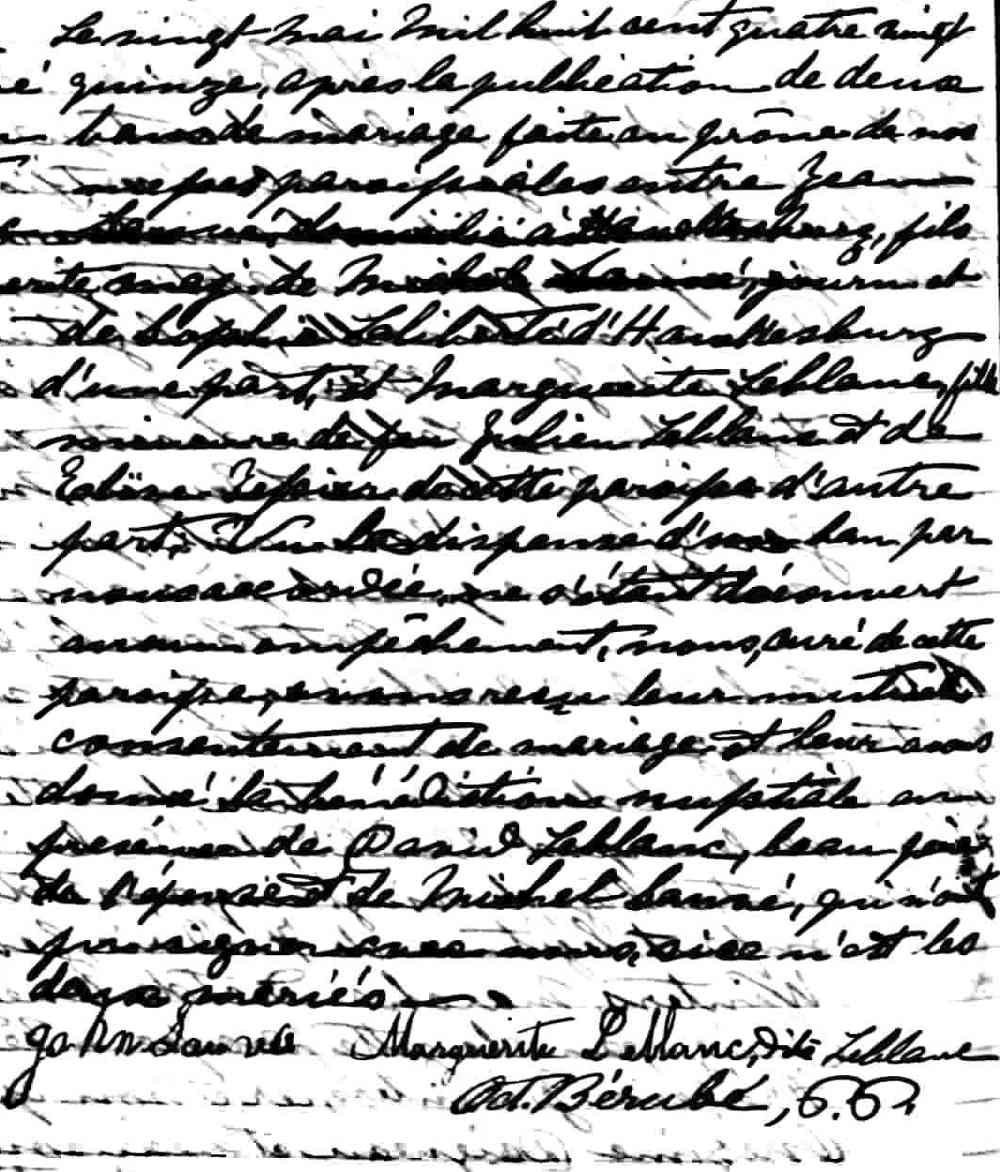 Le vingt Mai Mil huit cent quatre vingt
quinze, après la publication de deux
bans de mariage faite au prône de nos
messes paroissiales entre Jean
Sauvé, domicilié à Hawkesburg, fils
maj. de Michel Sauvé, journ et
de Sophie Leliberté d'Hawkesburg
d'une part, et Marguerite Leblanc, fille
mineure de feu Julien Leblanc et de
Tessier de cette paroisse d'autre
part. Vu la dispense d'un ban par
nous accordée, ne s'étant découvert
aucun empêchement, nous, curé de cette
paroisse, avons reçu leur mutuel
consentement de mariage et leur avons
donné la bénédiction nuptiale en
présence de David Leblanc, beau père
de l'épouse et de Michel Sauvé, qui n'ont
pu signer avec nous, si ce n'est les
deux mariés
John Sauve Marguerite Leblanc, dite Leblanc
Oct. Bérubé,